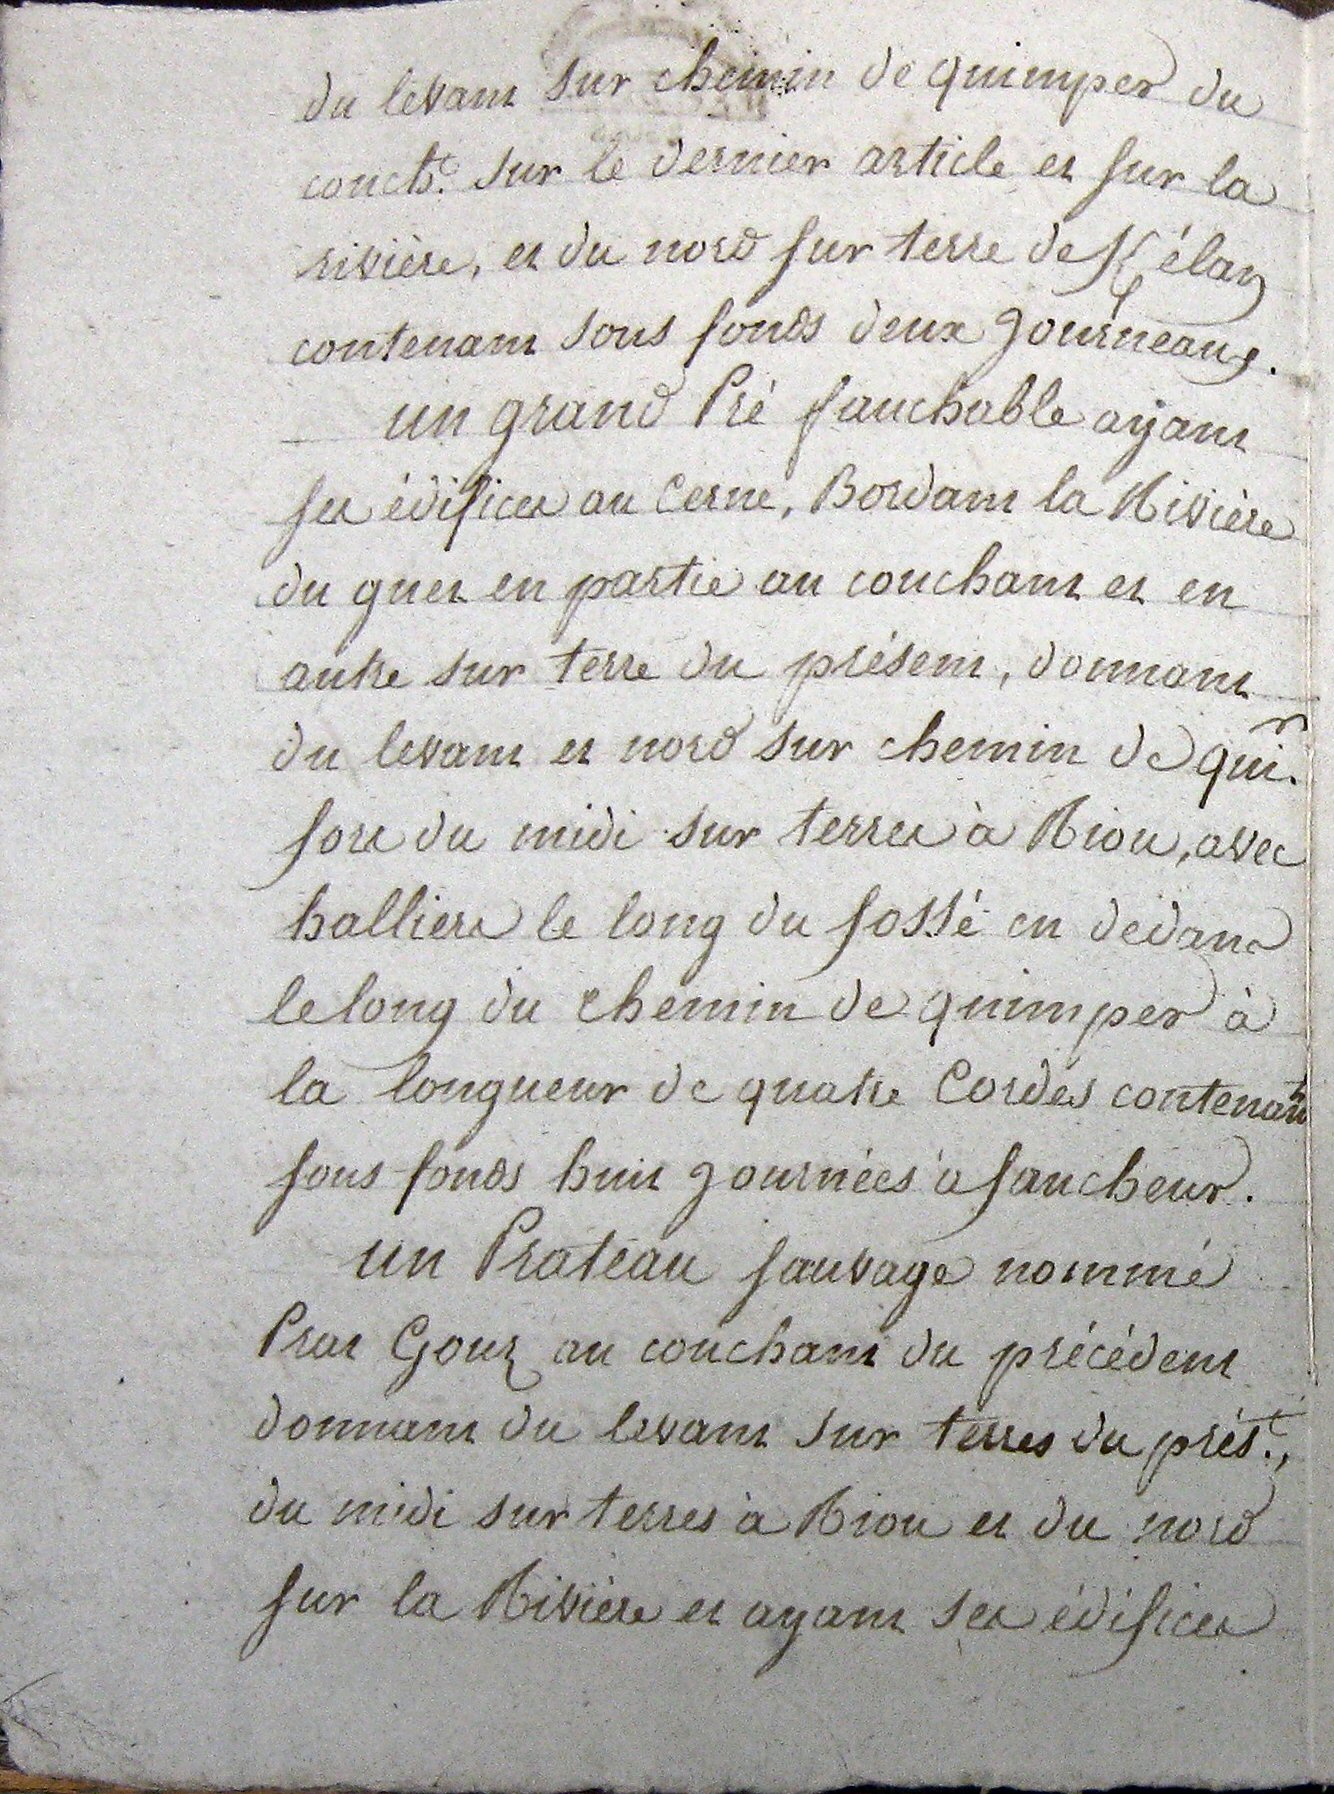 du levant sur chemin de quimper du
coucht. sur le dernier article et sur la
rivière, et du nord sur terre de K/élan
contenant sous fonds deux journeaux.
un grand Pré fauchable ayant
ses édifices au cerne, Bordant la Rivière
du guer en partie au couchant et en
autre sur terre du présent, donnant
du levant et nord sur chemin de quir.
fors du midi sur terres à Riou, avec
halliers le long du fossé en dedans
le long du chemin de quimper à
la longueur de quatre Cordes contenant
sous fonds huit journées à faucheur.
un Prateau sauvage nommé
Prat Gouz au couchant du précédent
donnant du levant sur terres du prést.,
du midi sur terres à Riou et du nord
sur la Rivière et ayant ses édifices